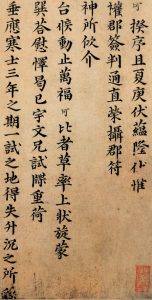 可揆序且夏庚伏蘊隆伏惟
權郡簽判通直榮攝郡符
神所欣介
台候動止萬福可比者草率上狀旋蒙
巽荅慰懌局已宇文兄試牒重荷
垂應寒士三年之期一試之地得失升沉之所